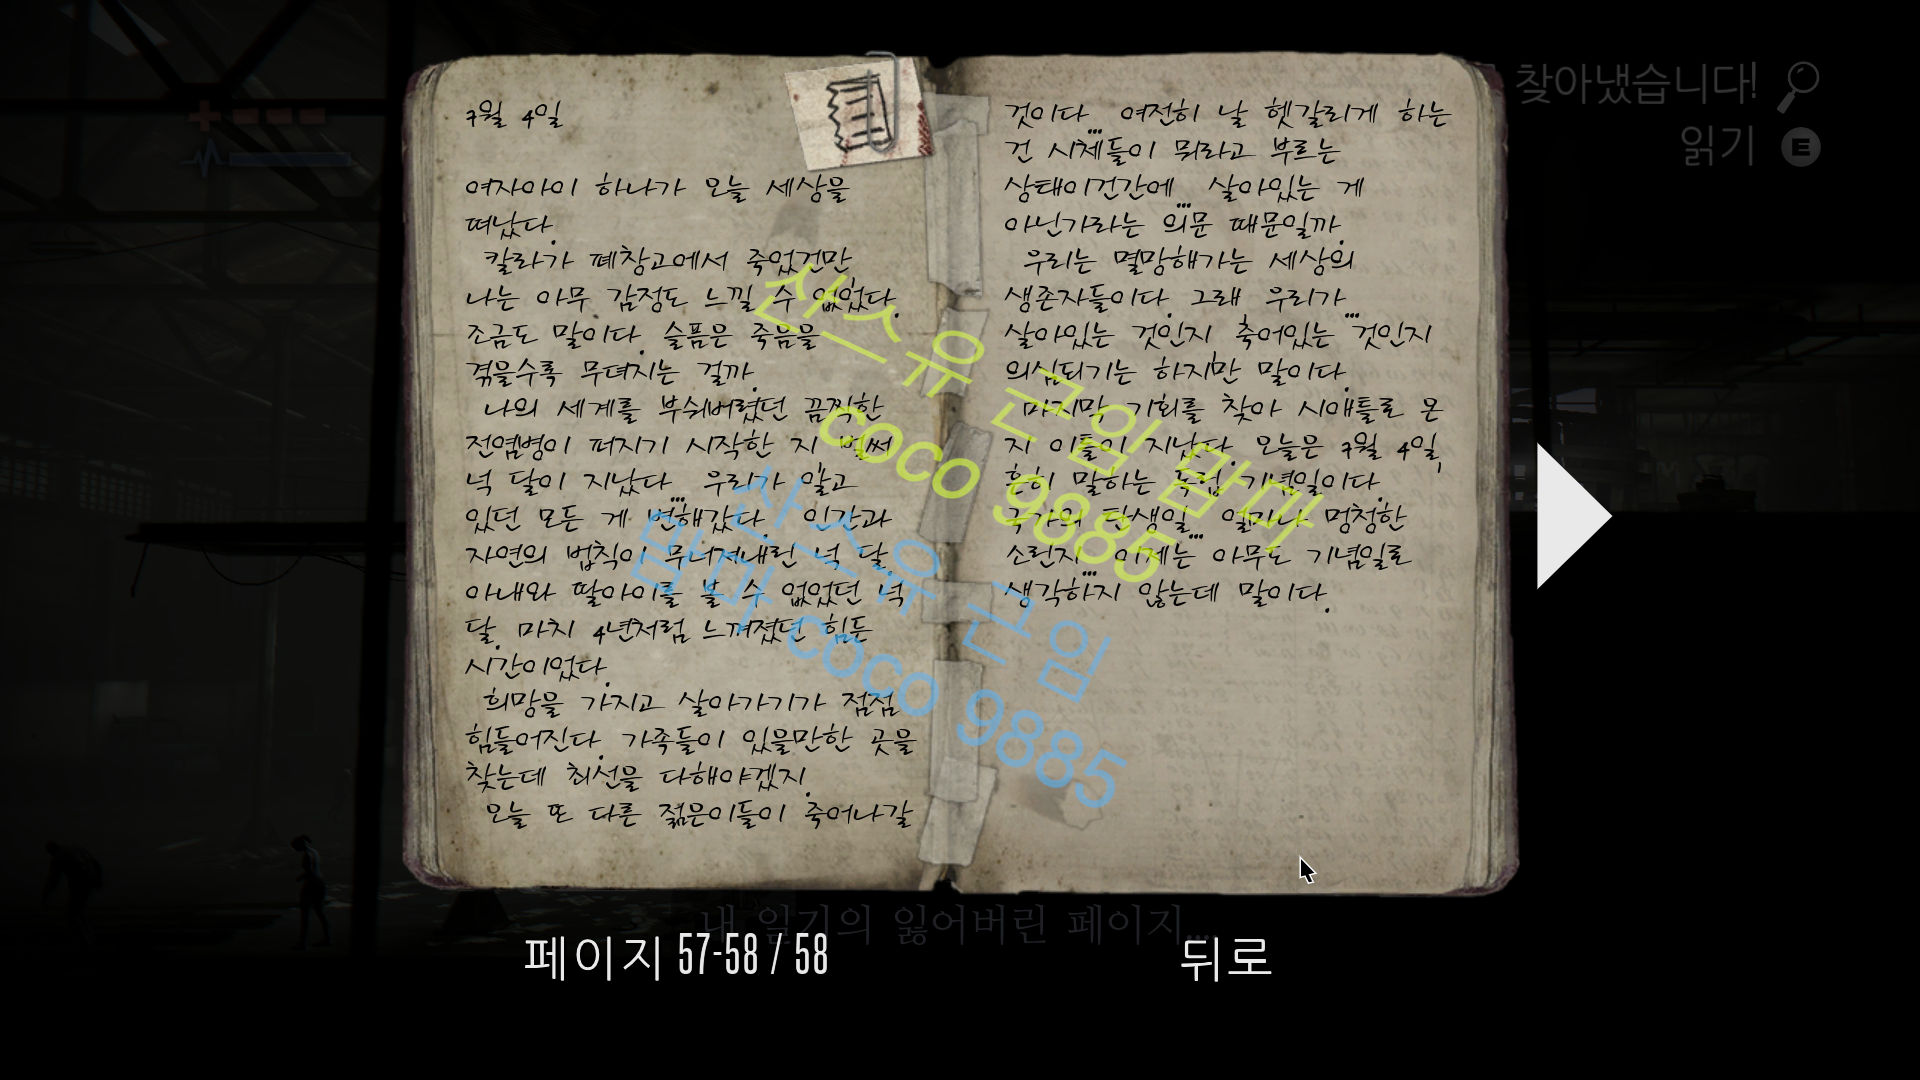 7월 4일
여자아이 하나가 오늘 세상을
떠났다.
칼라가 폐창고에서 죽었건만
나는 아무 감정도 느낄 수 없었다.
조금도 말이다. 슬픔은 죽음을
겪을수록 무뎌지는 걸까.
나의 세계를 부숴버렸던 끔찍한
전염병이 퍼지기 시작한 지 벌써
넉 달이 지났다... 우리가 알고
있던 모든 게 변해갔다. 인간과
자연의 법칙이 무너져내린 넉 달.
아내와 딸아이를 볼 수 없었던 넉
달. 마치 4년처럼 느껴졌던 힘든
시간이었다.
희망을 가지고 살아가기가 점점
힘들어진다. 가족들이 있을만한 곳을
찾는데 최선을 다해야겠지.
오늘 또 다른 젊은이들이 죽어나갈
것이다... 여전히 날 헷갈리게 하는
건 시체들이 뭐라고 부르는
상태이건간에... 살아있는 게
아닌가라는 의문 때문일까.
우리는 멸망해가는 세상의
생존자들이다. 그래 우리가
살아있는 것인지 죽어있는...것인지
의심되기는 하지만 말이다.
마지막 기회를 찾아 시애틀로 온
지 이틀이 지났다. 오늘은 7월 4일,
흔히 말하는 독립 기념일이다.
국가의 탄생일. 얼마나 멍청한
소린지... 이제는... 아무도 기념일로
생각하지 않는데 말이다.
산스유 근임 맘마
coco 9885
산스유 근임
맘마 coco 9885
찾아냈습니다!
읽기 E
내 일기의 잃어버린 페이지....
페이지 57-58 / 58
뒤로